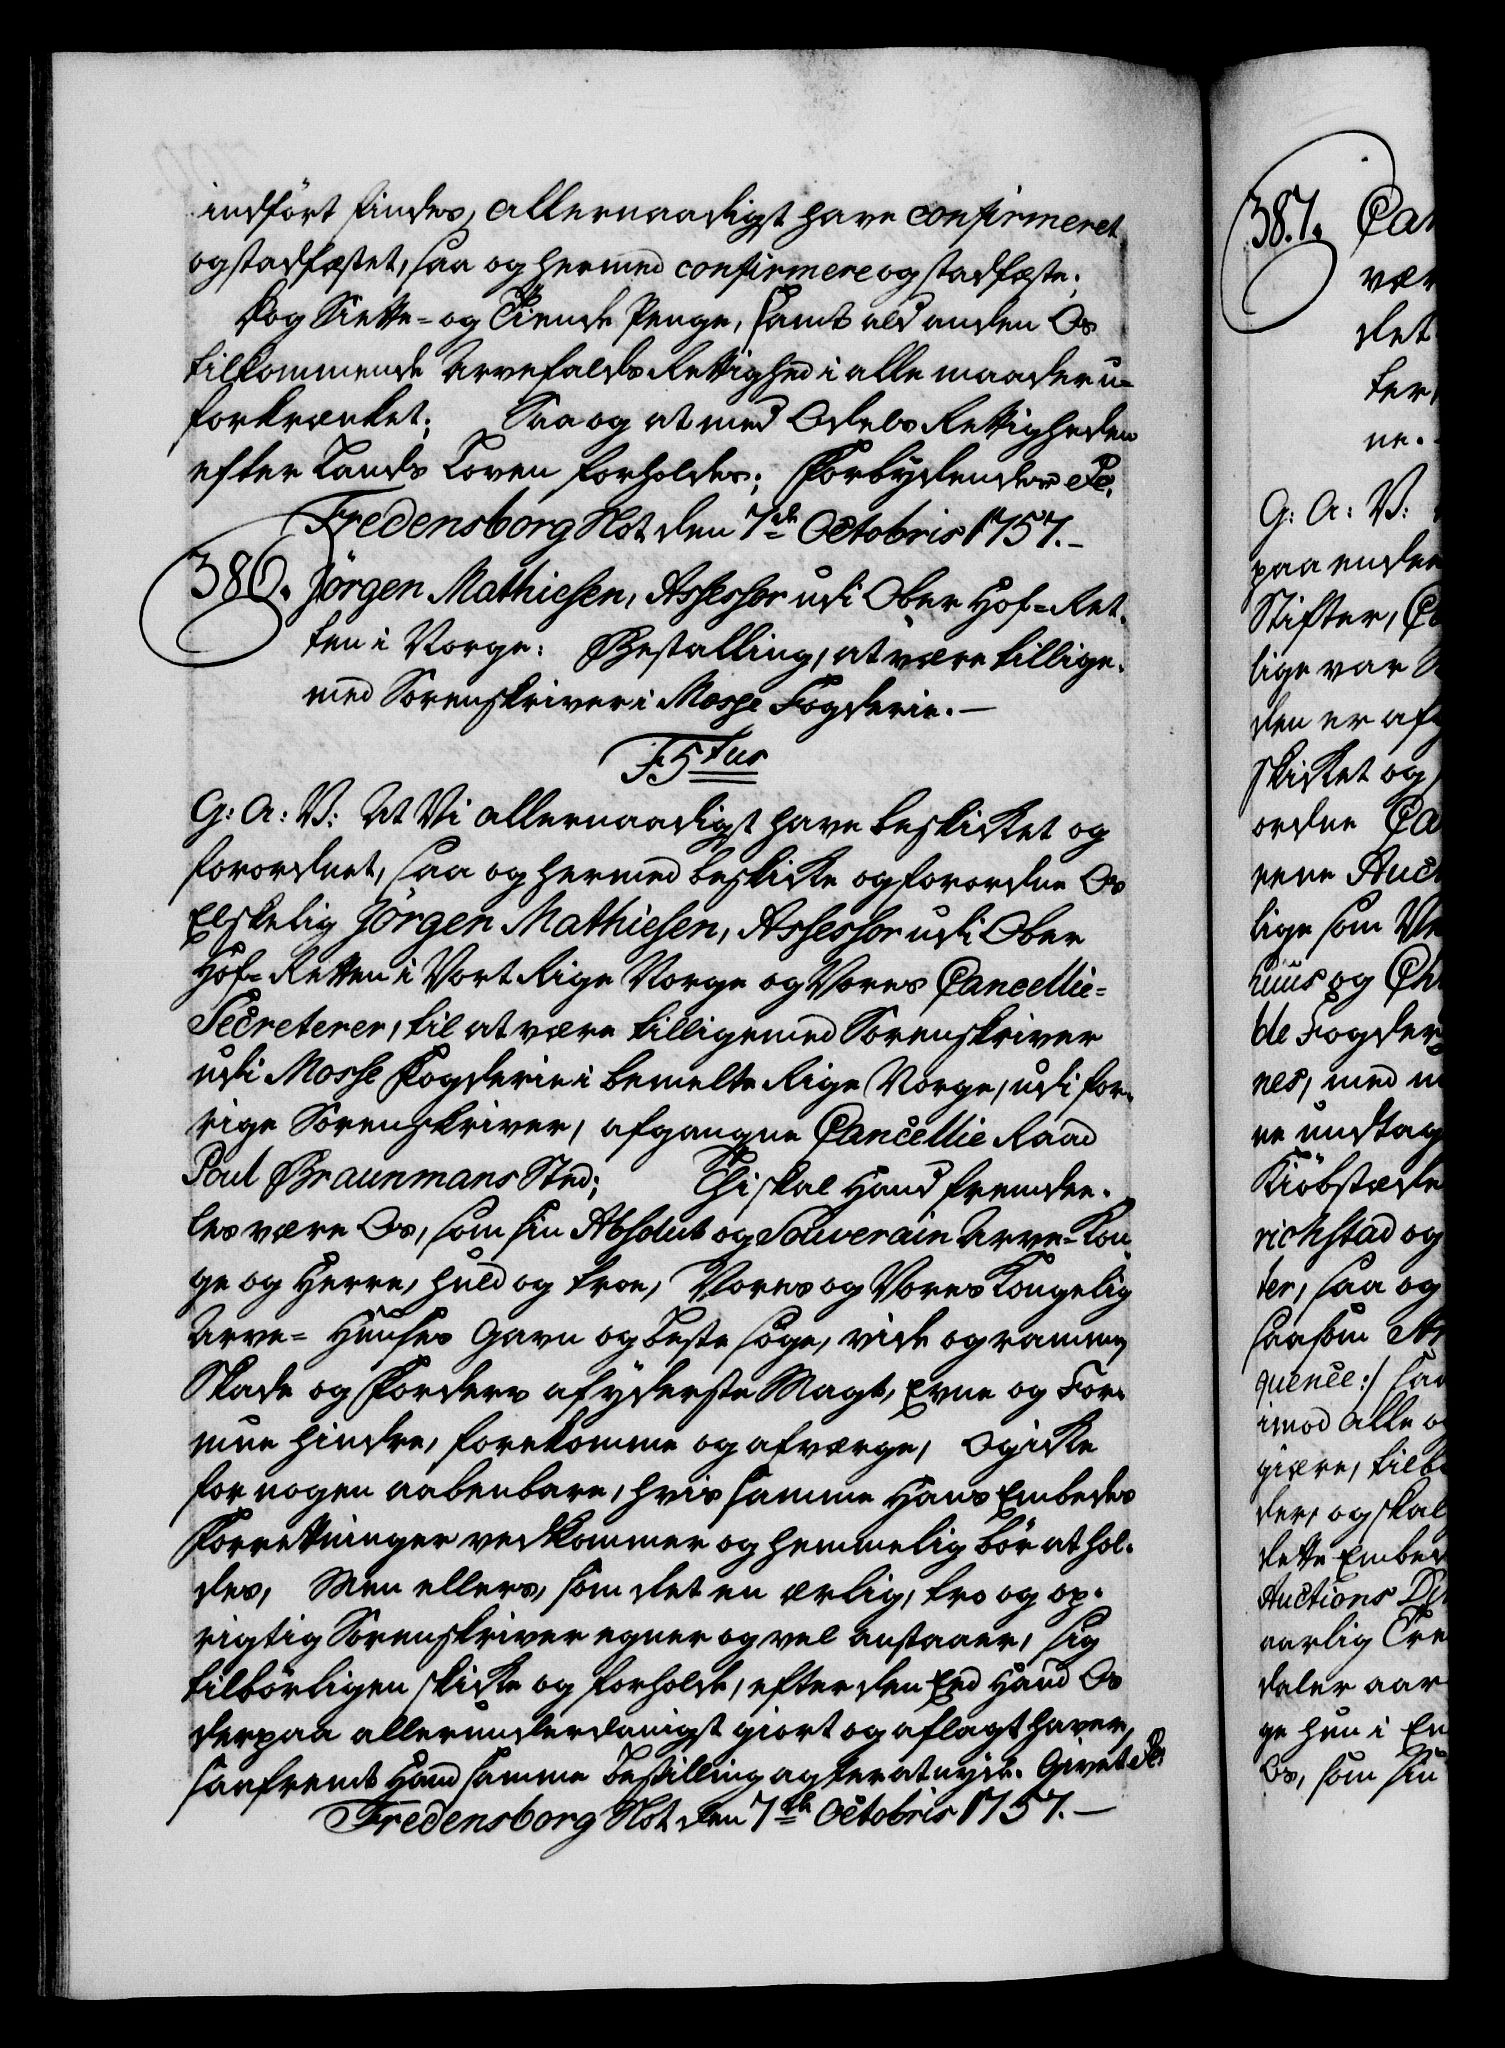 indført findes, allernaadigst have confirmeret
og stadfæstet, saa og hermed confirmere og stadfæste;
Dog Siette- og Tiende Penge, samt ald anden Os
tilkommende Arvefalds Rettighed i alle maader u-
forkrænket; Saa og at med Odels Rettigheden
efter Lands Loven forholdes; Forbydendes &c.
Fredensborg Slot den 7de Octobris 1757.
386. Jörgen Mathiesen, Assessor udi Ober Hof-Ret-
ten i Norge: Bestalling, at være tillige-
med Sorenskriver i Mosse Fogderie.
F 5tus
G: A: V: At Vi allernaadigst have beskikket og
forordnet, saa og hermed beskikke og forordne Os
Elskelig Jörgen Mathiesen, Assessor udi Ober
Hof-Retten i Vort Rige Norge og Vores Cancellie-
Secreterer, til at være tilligemed Sorenskriver
udi Mosse Fogderie i bemelte Rige Norge, udi for-
rige Sorenskriver, afgangne Cancellie Raad
Poul Braunmans Sted; Thi skal Hand fremde-
les være Os, som sin Absolut og Souverain Arve-Kon-
ge og Herre, huld og troe, Vores og Vores Kongelig
Arve-Huuses Gavn og beste søge, vide og ramme,
Skade og Forderv af yderste Magt, Evne og For-
mue hindre, forekomme og afværge, Og ikke
for nogen aabenbare, hvis samme Hans Embedes
Forretninger vedkommer og hemmelig bør at hol-
des, Men ellers, som det en ærlig, tro og op-
rigtig Sorenskriver egner og vel anstaaer, sig
tilbørligen skikke og forholde, efter den Eed Hand Os
derpaa allerunderdanigst giort og aflagt haver,
saafremt Hand samme Bestilling agter at nyde. Givet &c.
Fredensborg Slot den 7de Octobris 1757.
387. Can
vær
det
ter,
ne.
G: A: V:
paa ender
Stifter, Ca
lige var S
den er af
skikket og
ordne Ca
rere Auc
lige som Ve
huus og Ch
de Fogder
nes, med
re undtag
Kiöbstæde
richstad og
ter, saa og
saasom
quence:/ saa
imod alle o
giære, tilb
der, og skal
dette Embed
Auctions De
aarlig Tre
daler aar
ge hen i En
Os, som sin